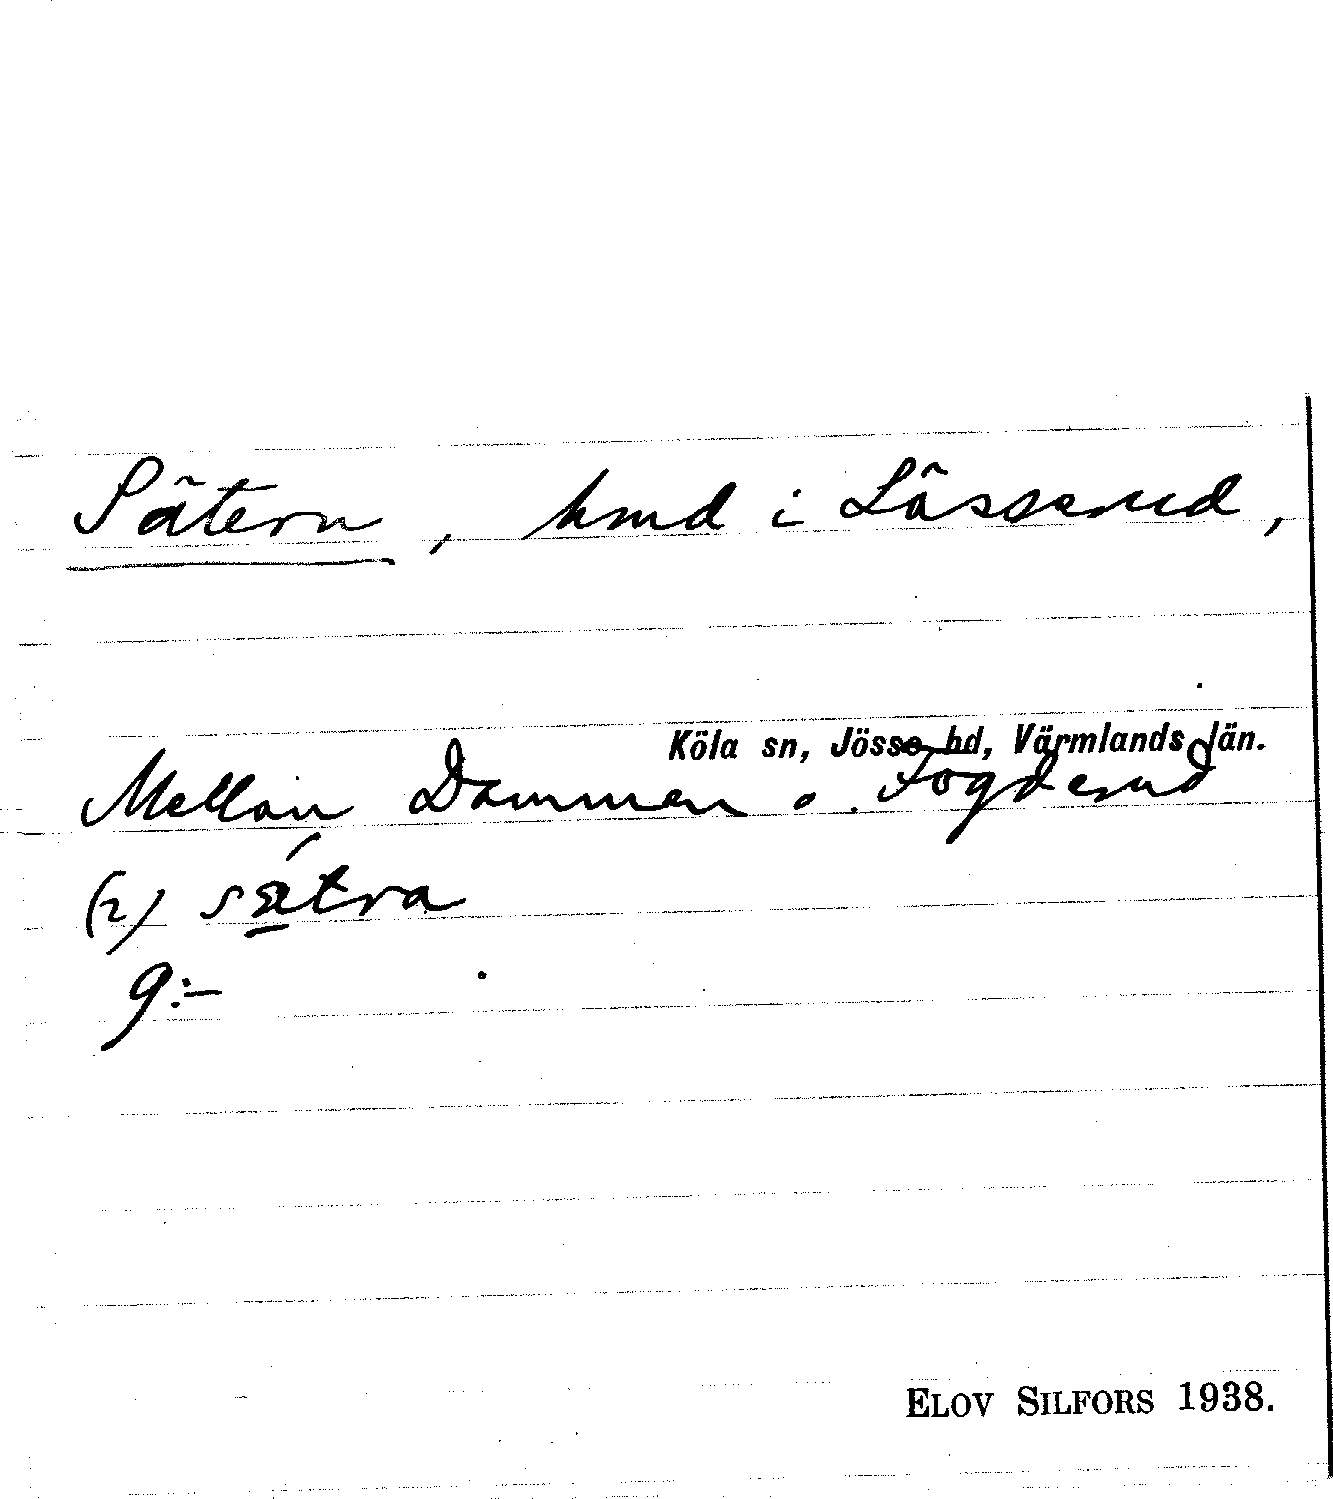 Sätern, hmd i Lässerud,
Köla sn, Jösse hd, Värmlands län.
Mellan Dammen o. Fogderud
(2) sætra
9:-
ELOV SILFORS 1938.